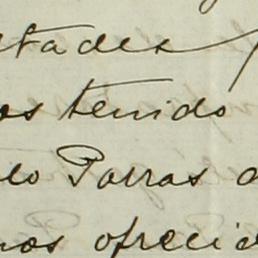 ltades
os tenido
lo Porras a
nos ofrecid